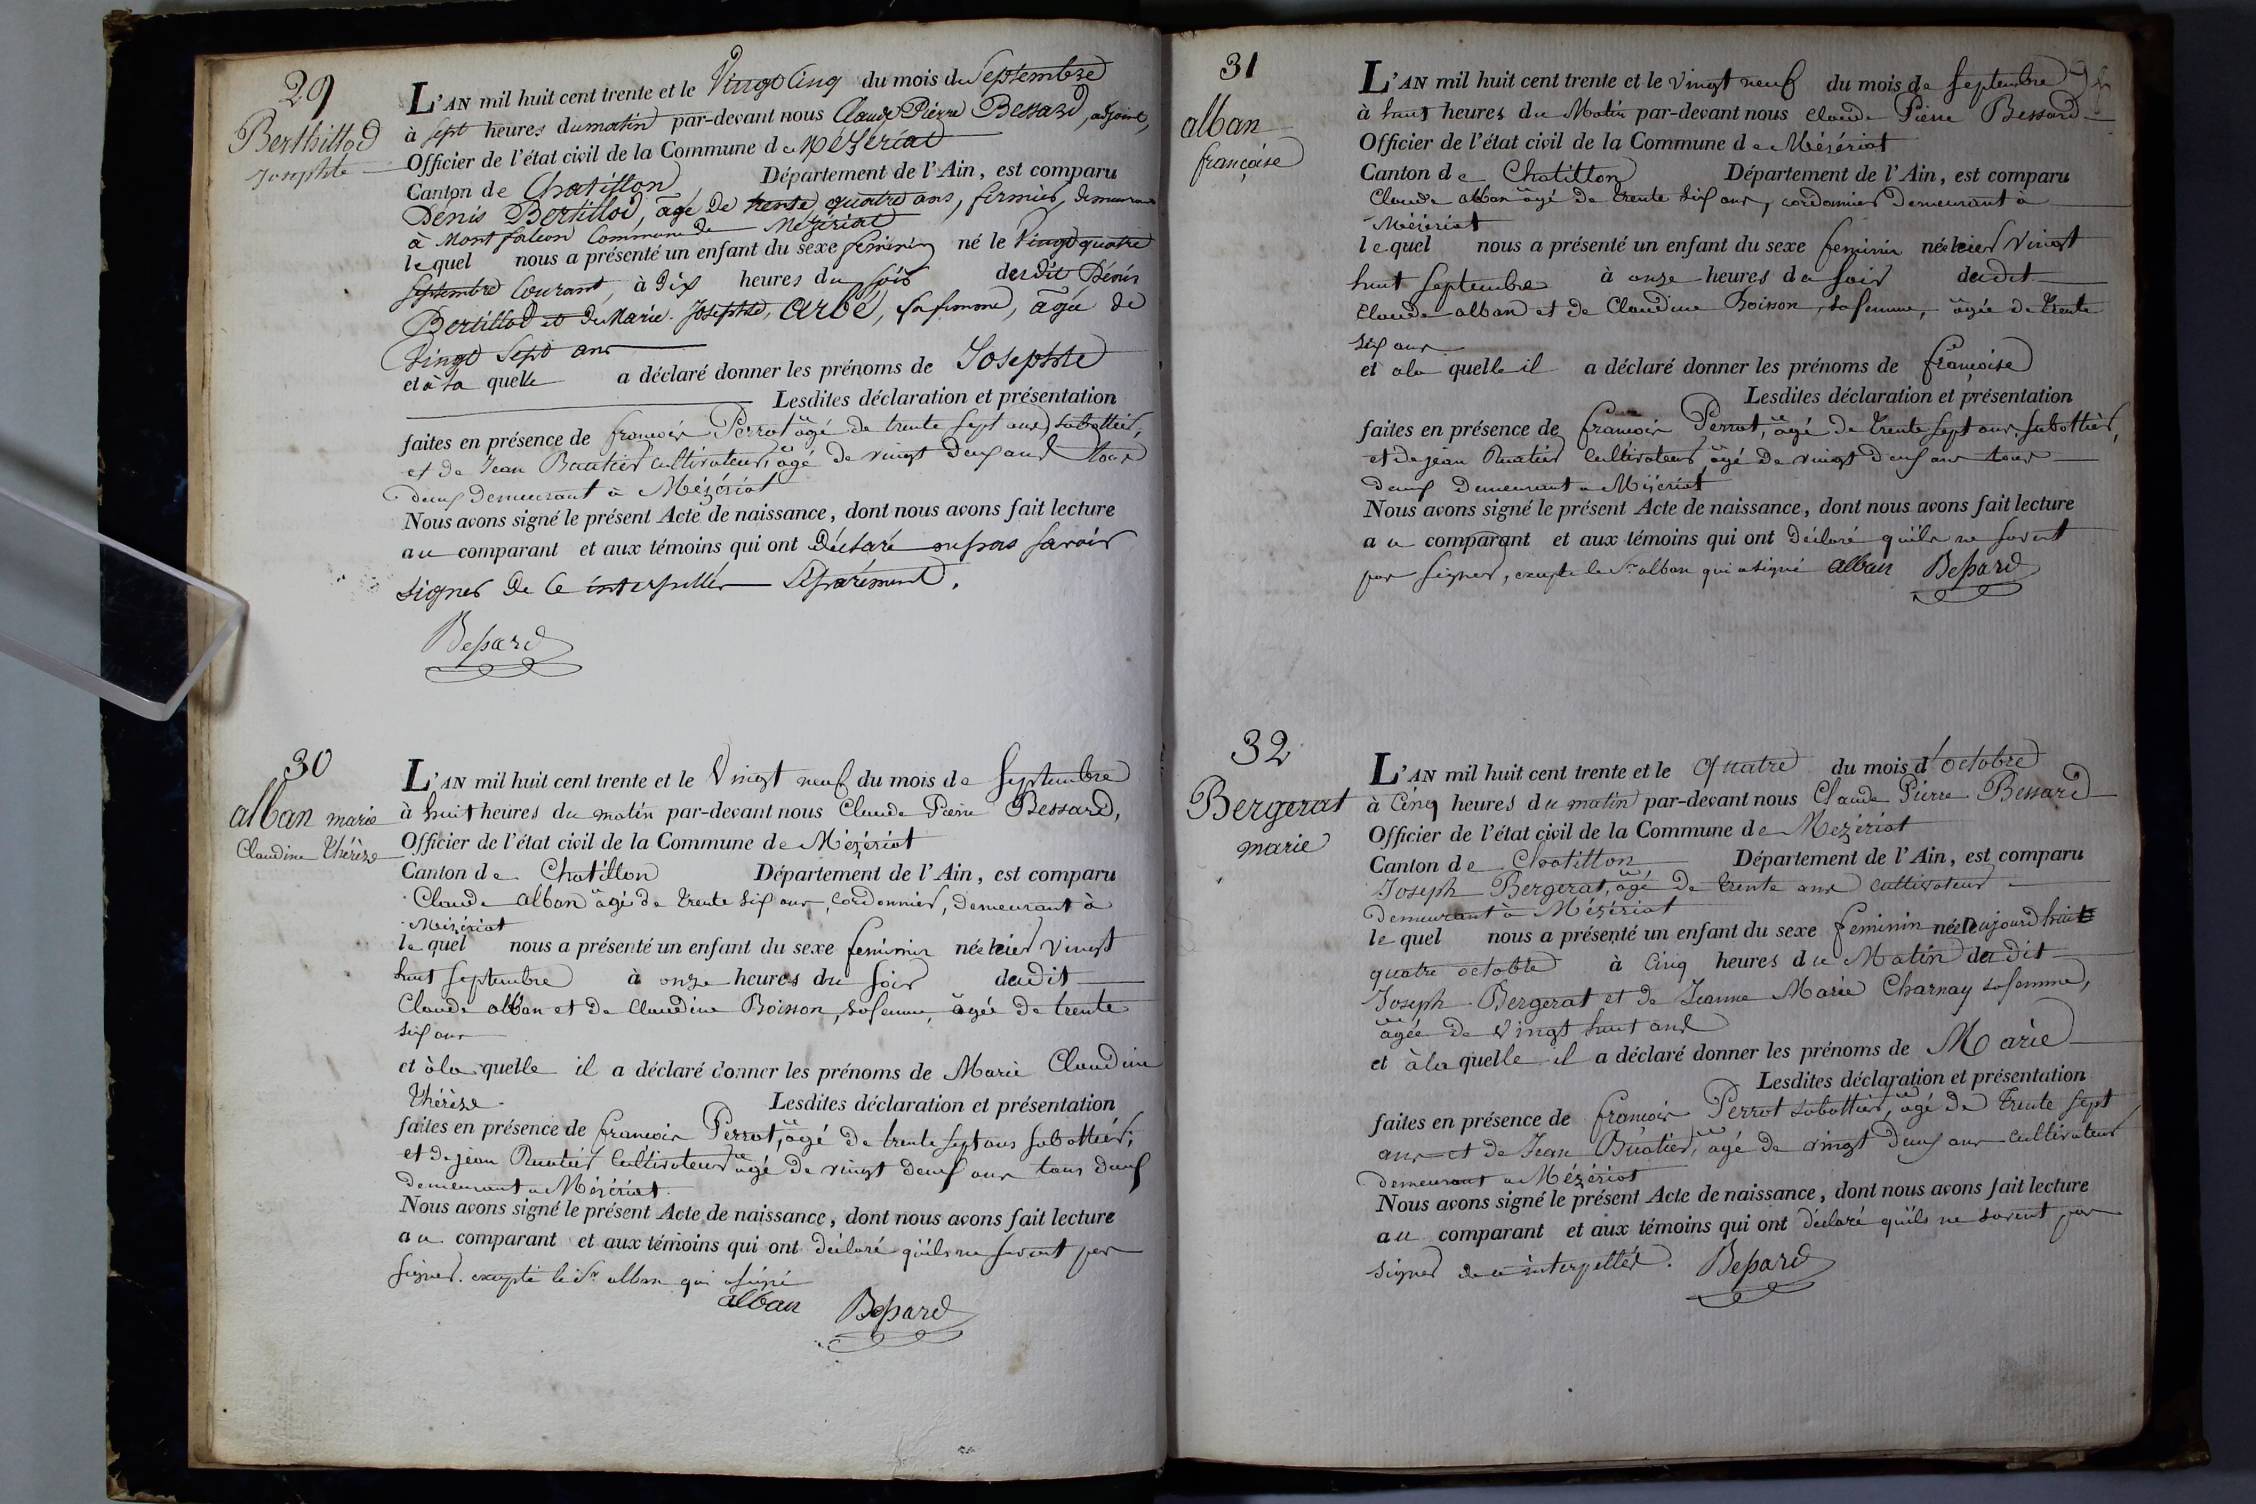 29
Berthillod
Josephte
L'AN mil huit cent trente et le Vingt Cinq du mois du Septembre
à sept heures du matin par-devant nous Claude Pierre Bessard, adjoint,
Officier de l'état civil de la Commune de Mézériat
Canton de Chatillon Département de l'Ain, est comparu
Dénis Bertillod, âgé de trente quatre ans, fermier, demeurant
à Montfalcon Commune de Mézériat
lequel nous a présenté un enfant du sexe feminin né le Vingt quatre
Septembre Courant, à Dix heures du soir du dit Dénis
Bertillod et de Marie Josephte, Curbé, sa femme, âgée de
Vingt Sept ans
et à la quelle a déclaré donner les prénoms de Josephte
Lesdites déclaration et présentation
faites en présence de francois Perrot âgé de trente sept ans, sabottier,
et de Jean Buatier Cultivateur, âgé de vingt deux ans tous
deux demeurant à Mézériat
Nous avons signé le présent Acte de naissance, dont nous avons fait lecture
au comparant et aux témoins qui ont déclaré ne pas savoir
signer de ce interpellés Séparément.
Bessard
30
alban marie
Claudine Thérèse
L'AN mil huit cent trente et le Vingt neuf du mois de Septembre
à huit heures du matin par-devant nous Claude Pierre Bessard,
Officier de l'état civil de la Commune de Mézériat
Canton de Chatillon Département de l'Ain, est comparu
Claude alban âgé de trente six ans, cordonnier, demeurant à
Mézériat
lequel nous a présenté un enfant du sexe feminin née hier Vingt
huit septembre à onze heures du soir du dit
Claude alban et de Claudine Boisson, sa femme, âgée de trente
six ans
et à la quelle il a déclaré donner les prénoms de Marie Claudine
Thérèse Lesdites déclaration et présentation
faites en présence de francois Perrot, âgé de trente sept ans sabottier,
et de jean Buatier Cultivateur âgé de vingt deux ans tous deux
demeurant a Mézériat
Nous avons signé le présent Acte de naissance, dont nous avons fait lecture
au comparant et aux témoins qui ont déclaré qu'ils ne savent pas
signer. excepté le Sr alban qui a signé
alban Bessard
31
alban
françoise
L'AN mil huit cent trente et le Vingt neuf du mois de septembre
à huit heures du Matin par-devant nous claude Pierre Bessard
Officier de l'état civil de la Commune de Mézériat
Canton de Chatillon Département de l'Ain, est comparu
Claude alban âgé de trente six ans, cordonnier demeurant a
Mézériat
lequel nous a présenté un enfant du sexe feminin née hier Vingt
huit septembre à onze heures du soir du dit
Claude alban et de Claudine Boisson, sa femme, âgée de trente
six ans
et a la quelle il a déclaré donner les prénoms de françoise
Lesdites déclaration et présentation
faites en présence de francois Perrot, âgé de trente sept ans, sabottier,
et de jean Buatier Cultivateur âgé de vingt deux ans tous
deux demeurant a Mézériat
Nous avons signé le présent Acte de naissance, dont nous avons fait lecture
au comparant et aux témoins qui ont déclaré qu'ils ne savent
pas signer, excepté le Sr alban qui a signé alban Bessard
32
Bergerat
marie
L'AN mil huit cent trente et le quatre du mois d'octobre
à Cinq heures du matin par-devant nous Claude Pierre Bessard
Officier de l'état civil de la Commune de Mezériat
Canton de Chatillon Département de l'Ain, est comparu
Joseph Bergerat, âgé de trente ans cultivateur
demeurant à Mézériat
lequel nous a présenté un enfant du sexe feminin née aujourd'huit
quatre octobre à Cinq heures du Matin du dit
Joseph Bergerat et de Jeanne Marie Charnay sa femme,
âgée de Vingt huit ans
et à la quelle il a déclaré donner les prénoms de Marie
Lesdites déclaration et présentation
faites en présence de francois Perrot sabottier, âgé de trente sept
ans et de Jean Buatier, âgé de vingt deux ans cultivateur
demeurant a Mézériat
Nous avons signé le présent Acte de naissance, dont nous avons fait lecture
au comparant et aux témoins qui ont déclaré qu'ils ne savent pas
signer de ce interpellés. Bessard